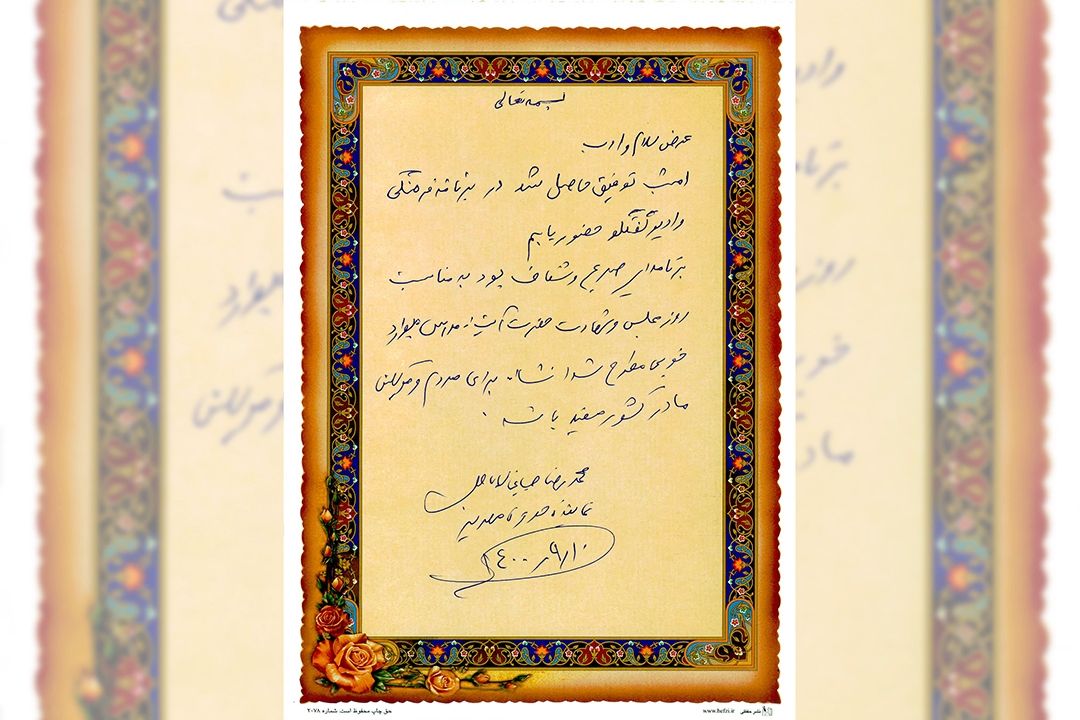 بسمه تعالی
عرض سلام و ادب
امشب توفیق حاصل شد در برنامه فرهنگی
رادیو گفتگو حضور یابم
برنامه‌ای صریح و شفاف بود به مناسبت
روز مجلس و شهادت حضرت آیت ا.. مدرس موارد
خوبی مطرح شد انشاا.. برای مردم و
ما در کشور مفید باشد.
محمد رضا
نماینده
۴۰۰/۹/۱۰
حق چاپ محفوظ است. شماره ۲۰۷۸
www.hefzi.ir نشر حفظی